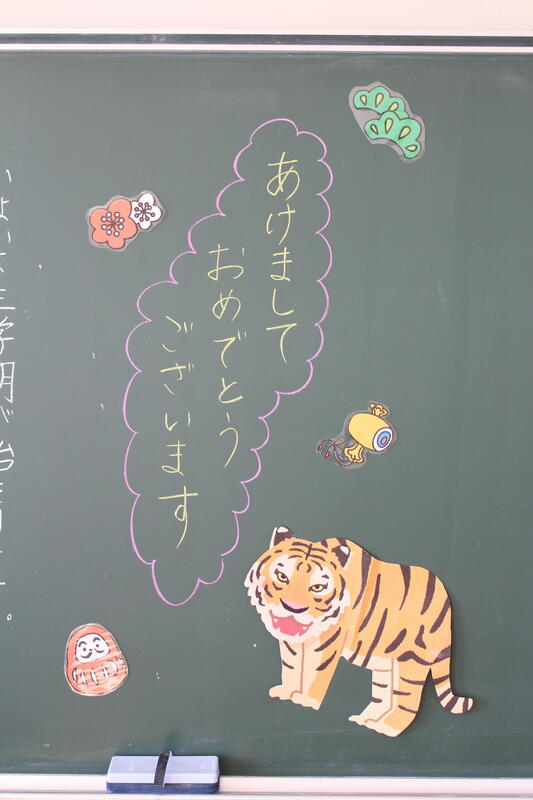 あけまして
おめでとう
ございます
いよいよ三学期が始まります。